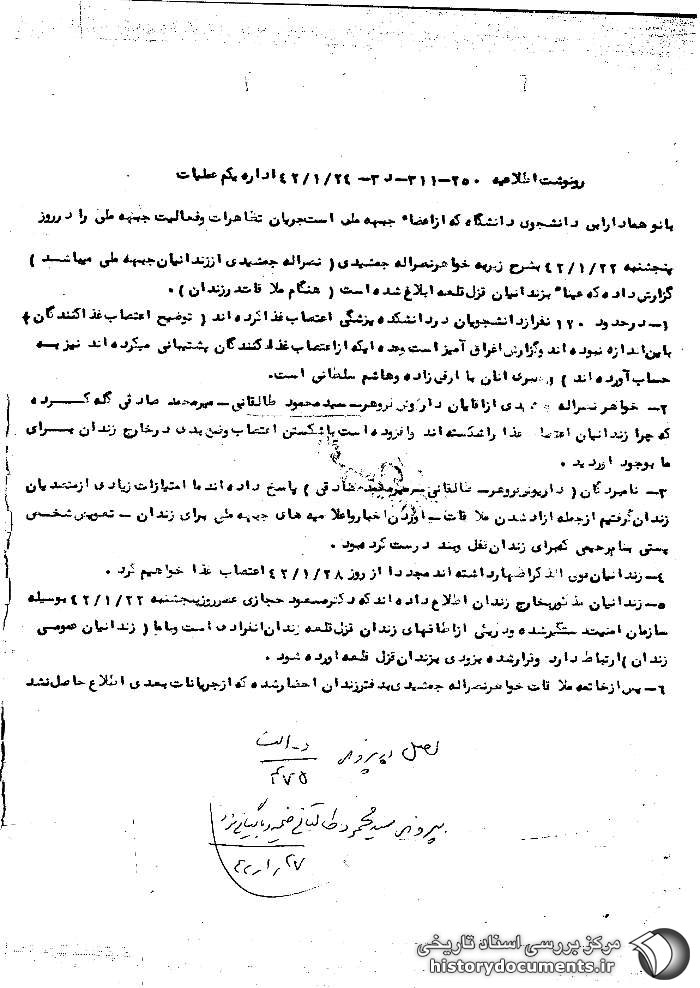 رونوشت اطلاعیه ۲۵۰-۳۱۱-د۳- ۴۲/۱/۲۴ اداره یکم عملیات
بانو هما دارابی دانشجوی دانشگاه که از اعضاء جبهه ملی است جریان تظاهرات و فعالیت جبهه ملی را در روز
پنجشنبه ۴۲/۱/۲۲ بشرح زیر به خواهر نصراله جمشیدی ( نصراله جمشیدی از زندانیان جبهه ملی میباشد )
گزارش داده که عیناً بزندانیان قزل قلعه ابلاغ شده است ( هنگام ملاقات در زندان ) .
۱- در حدود ۱۲۰ نفر از دانشجویان در دانشکده پزشگی اعتصاب غذا کرده اند ( توضیح اعتصاب غذا کنندگان
باین اندازه نبوده اند و گزارش اغراق آمیز است وعده ایکه از اعتصاب غذا کنندگان پشتیبانی میکرده اند نیز به
حساب آورده اند ) و رهبری آنان با ارقی زاده و هاشم سلطانی است.
۲- خواهر نصراله جمشیدی از آقایان داریوش فروهر- سید محمود طالقانی- میرمحمد صادقی گله کرده
که چرا زندانیان اعتصاب غذا را شکسته اند و افزوده است با شکستن اعتصاب وضع بدی در خارج زندان برای
ما بوجود آوردید .
۳- نامبردگان ( داریوش فروهر- طالقانی- میرمحمد صادقی ) پاسخ داده اند ما امتیازات زیادی از متصدیان
زندان گرفتیم از جمله آزاد شدن ملاقات- آوردن اخبار و اعلامیه های جبهه ملی برای زندان - تعویض شخصی
پستی بنام رحیمی که برای زندان نقل و بند درست کرده بود .
۴- زندانیان فوق الذکر اظهار داشته اند مجددا از روز ۴۲/۱/۲۸ اعتصاب غذا خواهیم کرد .
۵- زندانیان مذکور بخارج زندان اطلاع داده اند که دکتر مسعود حجازی عصر روز پنجشنبه ۴۲/۱/۲۲ بوسیله
سازمان امنیت دستگیر شده و در یکی از اطاقهای زندان قزل قلعه زندان انفرادی است و با ما ( زندانیان عمومی
زندان ) ارتباط دارد و قرار شده بزودی بزندان قزل قلعه آورده شود .
۶- پس از خاتمه ملاقات خواهر نصراله جمشیدی بدفتر زندان احضار شده که از جریانات بعدی اطلاع حاصل نشد
اصل در پرونده د- الف
۴۷۵
پرونده سید محمود طالقانی ضمیمه و بایگانی شود
۴۲/۱/۲۷
مرکز بررسی اسناد تاریخی
historydocuments.ir